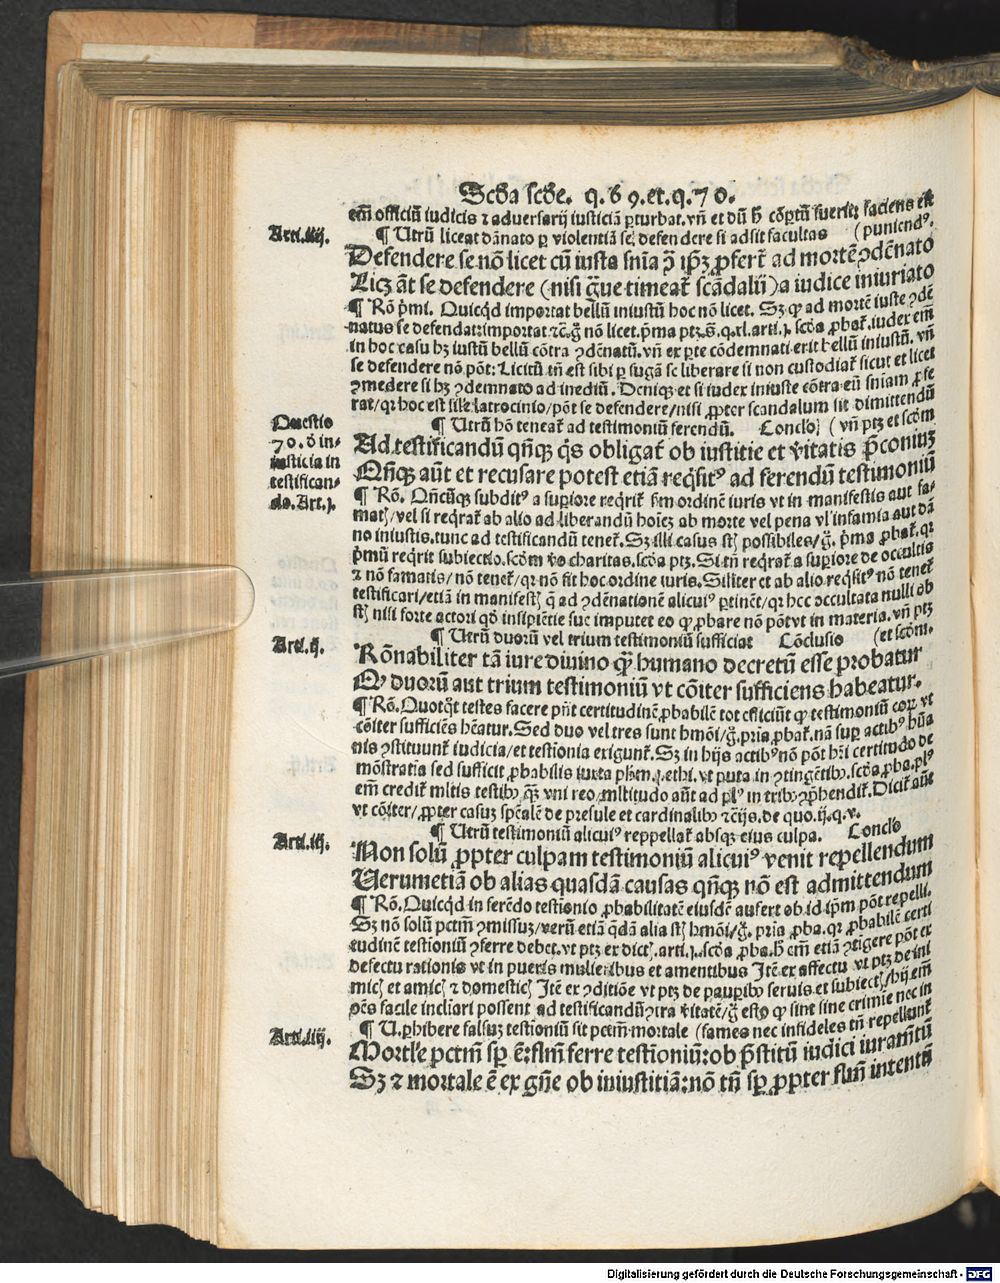 Scďa scďe. q.69.et.q.70.
em̄ officiū iudicis ⁊ aduersarij iusticiā ꝑturbat. vn̄ et dū h̄ cōꝑtū fuerit; faciens est
Arti.iiij.
¶ Utrū liceat dānato ꝑ violentiā se defendere si adsit facultas (puniendꝰ.
Defendere se nō licet cū iusta sn̄ia p̄ ip̄ꝫ ꝓfert̄ ad mortē ꝯdēnato
Licꝫ āt se defendere (nisi g̈ue timeat̄ scādalū) a iudice iniuriato
¶ Rō p̄mi. Quicq̇d importat bellū iniustū hoc nō licet. Sꝫ ꝙ ad mortē iuste ꝯdē
natus se defendat: importat ⁊c̄. g̈ nō licet. p̄ma ptꝫ. s̄. q.xl. arti.j. scďa ꝓbat̄. iudex em̄
in hoc casu hꝫ iustū bellū cōtra ꝯdēnatū. vn̄ ex ꝑte cōdemnati erit bellū iniustū. vn̄
se defendere nō pōt: Licitū tn̄ est sibi ꝑ fugā se liberare si non custodiat̄ sicut et licet
ꝯmedere si hꝫ ꝯdemnato ad inediū. Deniqꝫ et si iudex iniuste cōtra eū sn̄iam ꝓfe
rat/qꝛ hoc est sil'e latrocinio/pōt se defendere/nisi ꝓpter scandalum sit dimittendū
Questio
70. ď in-
iusticia in
testifican-
do. Art.j.
¶ Utrū hō teneat̄ ad testimoniū ferendū. Conclo͂ (vn̄ ptꝫ et scďm
Ad testificandū qn̄qꝫ q̇s obligat̄ ob iustitie et v̄itatis p̄coniuꝫ
Qn̄qꝫ aūt et recusare potest etiā req̇sitꝰ ad ferendū testimoniū
¶ Rō. Qn̄cūqꝫ subditꝰ a suꝑiore req̇rit̄ scďm ordinē iuris vt in manifestis aut fa-
matꝭ/vel si req̇rat̄ ab alio ad liberandū hoīeꝫ ab morte vel pena vl' infamia aut dā
no iniustis. tunc ad testificandū tenet̄. Sꝫ illi casus stꝭ possibiles/g̈. p̄ma ꝓbat̄. qꝛ
p̄mū req̇rit subiectio. scďm v̊o charitas. scďa ptꝫ. Si tn̄ req̇rat̄ a suꝑiore de occultis
⁊ nō famatis/nō tenet̄/qꝛ nō fit hoc ordine iuris. Siliter et ab alio req̇sitꝰ nō tenet̄
testificari/etiā in manifestꝭ q̄ ad ꝯdēnationē alicuiꝰ ꝑtinēt/qꝛ hec occultata nulli ob
stꝭ nisi forte actori qď insipiētie sue imputet eo ꝙ ꝓbare nō pōt vt in materia. vn̄ ptꝫ
Arti.ij.
¶ Utrū duorū vel trium testimoniū sufficiat Cōclusio (et scďm.
Rōnabiliter tā iure diuino q̄ꝫ humano decretū esse probatur
Qꝙ duorū aut trium testimoniū vt cōiter sufficiens habeatur.
¶ Rō. Quotq̇t testes facere pn̄t certitudinē ꝓbabilē tot efficiūt ꝙ testimoniū eoꝝ vt
cōiter sufficiēs hēatur. Sed duo vel tres sunt hmōi/g̈. pria ꝓbat̄. nā suꝑ actibꝰ hūa
nis ꝯstituunt̄ iudicia/et testionia exigunt̄. Sꝫ in hijs actibꝰ nō pōt hr̄i certitudo de
mōstratia sed sufficit ꝓbabilis iuxta phm̄. j. ethi. vt puta in ꝯtingētibꝰ. scďa ꝓba. plꝰ
em̄ credit̄ mltis testibꝰ q̄ꝫ vni reo, mltitudo aūt ad plꝰ in tribꝰ ꝯpͪhendit̄. Dicit̄ aūt
vt cōiter/ꝓpter casuꝫ spēalē de presule et cardinalibꝰ ⁊c̄ijs. de quo. ij.q.v.
Arti.iij.
¶ Utrū testimoniū alicuiꝰ reppellat̄ absqꝫ eius culpa. Conclo͂
Non solū ꝓpter culpam testimoniū alicuiꝰ venit repellendum
Uerumetiā ob alias quasdā causas qn̄qꝫ nō est admittendum
¶ Rō. Quicq̇d in ferēdo testionio ꝓbabilitatē eiusdē aufert ob id ip̄m pōt repelli.
Sꝫ nō solū pctm̄ ꝯmissuꝫ/verū etiā q̇dā alia stꝭ hmōi/g̈. pria ꝓba. qꝛ ꝓbabilē certi
tudinē testioniū ꝯferre debet. vt ptꝫ ex dictꝭ. arti.j. scďa ꝓba. h̄ em̄ etiā ꝯtigere pōt ex
defectu rationis vt in pueris mulieribus et amentibus Itē ex affectu vt ptꝫ de ini
micꝭ et amicꝭ ⁊ domesticꝭ Itē ex ꝯditiōe vt ptꝫ de pauꝑibꝰ seruis et subiectꝭ/hij em̄
oēs facile inclīari possent ad testificandū ꝯtra v̄itatē/g̈ esto ꝙ sint sine crimīe nec in
Arti.iiij.
¶ U. ꝓhibere falsuꝫ testioniū sit pctm̄ mortale (fames nec infideles tn̄ repellunt̄
Mortl'e pctm̄ sꝑ ē: flm̄ ferre testioniū: ob p̄stitū iudici iuram̄tū
Sꝫ ⁊ mortale ē ex gn̄e ob iniustitiā: nō tn̄ sꝑ ꝓpter flm̄ intentū
Digitalisierung gefördert durch die Deutsche Forschungsgemeinschaft - DFG